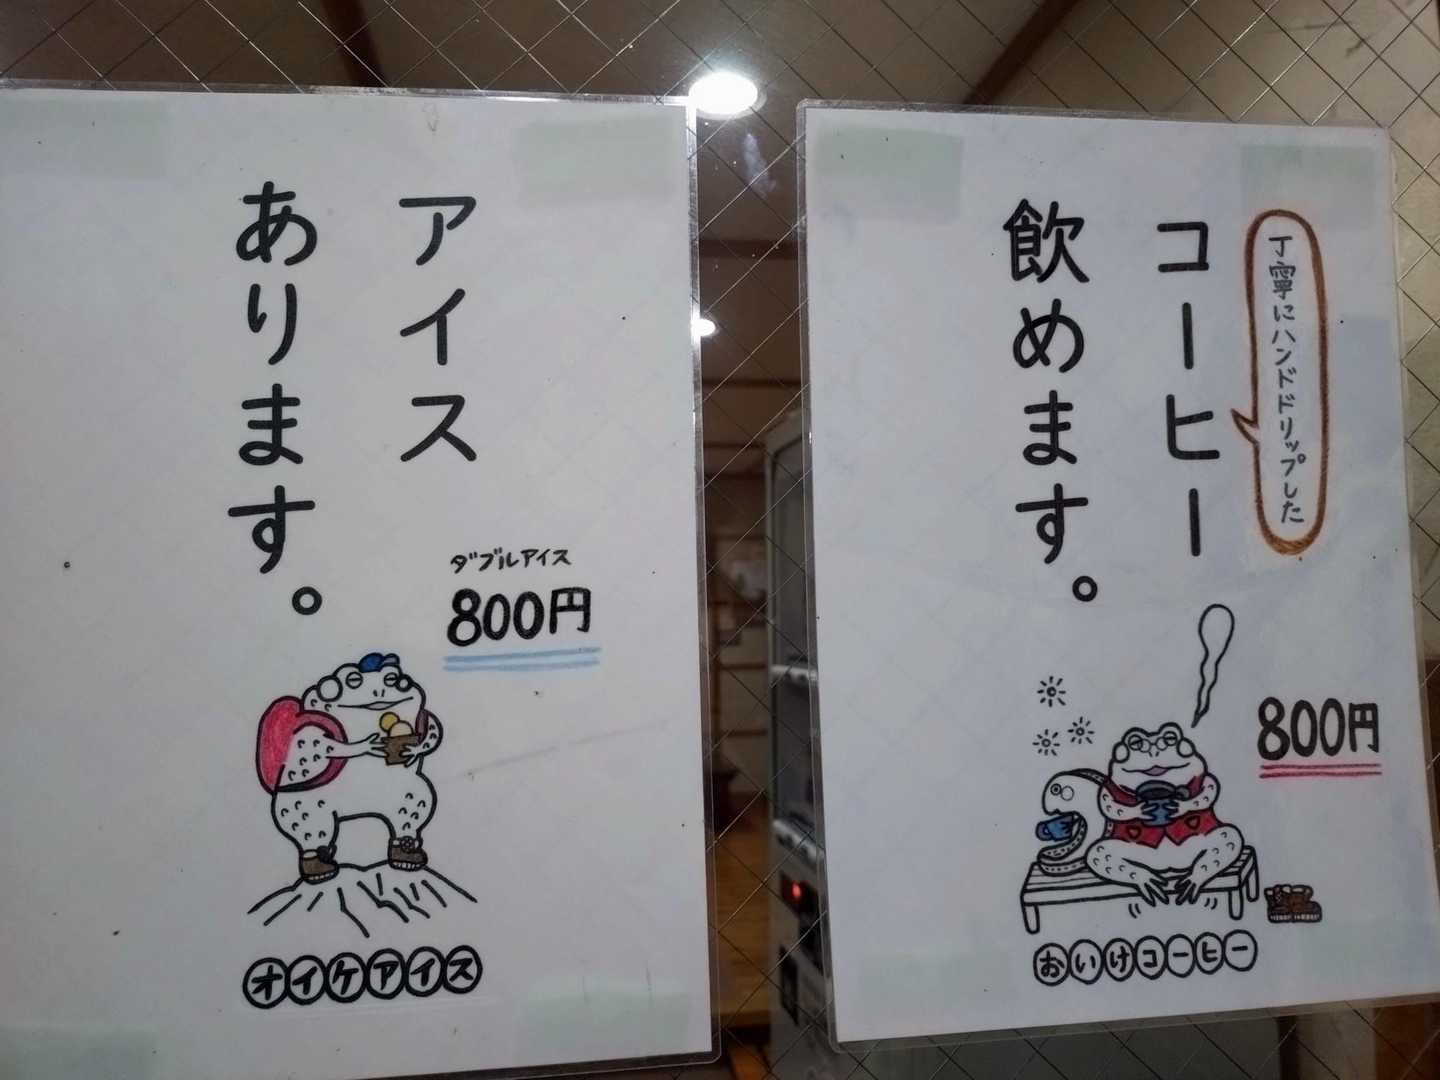 アイス
あります。
ダブルアイス
800円
オイケアイス
丁寧にハンドドリップした
コーヒー
飲めます。
800円
おいけコーヒー